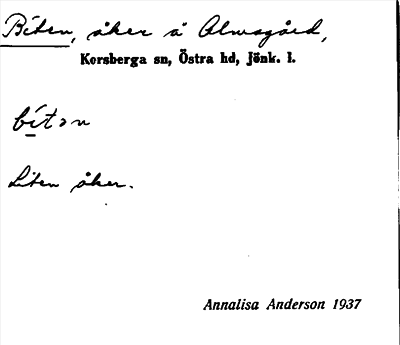 Biten, åker å Almsgård,
Korsberga sn, Östra hd, Jönk. l.
bítən
Liten åker.
Annalisa Anderson 1937